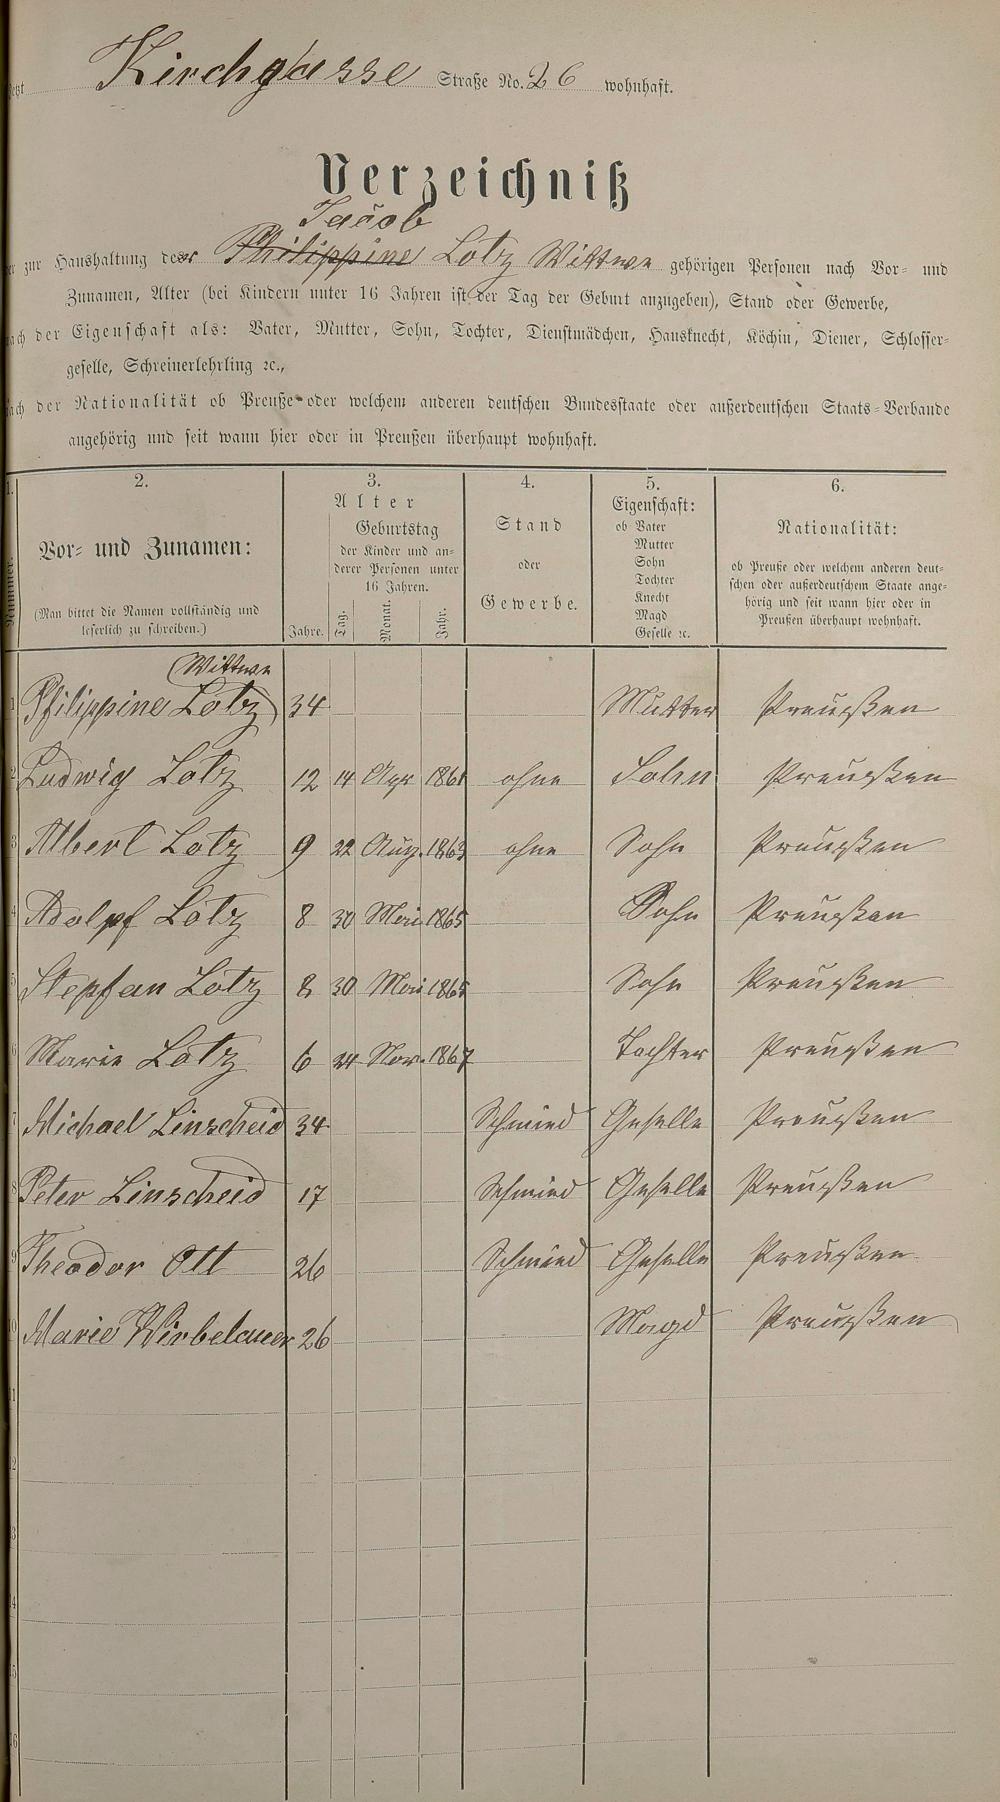 jetzt Kirchgasse Straße No. 26 wohnhaft.
Verzeichniß
Jacob
der zur Haushaltung der Philippine Lotz Wittwe gehörigen Personen nach Vor- und
Zunamen, Alter (bei Kindern unter 16 Jahren ist der Tag der Geburt anzugeben), Stand oder Gewerbe,
nach der Eigenschaft als: Vater, Mutter, Sohn, Tochter, Dienstmädchen, Hausknecht, Köchin, Diener, Schlosser-
geselle, Schreinerlehrling ꝛc.,
nach der Nationalität ob Preuße oder welchem anderen deutschen Bundesstaate oder außerdeutschen Staats-Verbande
angehörig und seit wann hier oder in Preußen überhaupt wohnhaft.
1. 2. 3. 4. 5. 6.
Nummer.
Vor- und Zunamen:
(Man bittet die Namen vollständig und
leserlich zu schreiben.)
Alter
Geburtstag
der Kinder und an-
derer Personen unter
16 Jahren.
Jahre. Tag. Monat. Jahr.
Stand
oder
Gewerbe.
Eigenschaft:
ob Vater
Mutter
Sohn
Tochter
Knecht
Magd
Geselle ꝛc.
Nationalität:
ob Preuße oder welchem anderen deut-
schen oder außerdeutschem Staate ange-
hörig und seit wann hier oder in
Preußen überhaupt wohnhaft.
Wittwe
1 Philippine Lotz 34 Mutter Preußen
2 Ludwig Lotz 12 14 Apr 1861 ohne Sohn Preußen
3 Albert Lotz 9 22 Aug. 1863 ohne Sohn Preußen
4 Adolph Lotz 8 30 Mai 1865 Sohn Preußen
5 Stephan Lotz 8 30 Mai 1865 Sohn Preußen
6 Marie Lotz 6 24 Nov. 1867 Tochter Preußen
7 Michael Linscheid 34 Schmied Geselle Preußen
8 Peter Linscheid 17 Schmied Geselle Preußen
9 Theodor Ott 26 Schmied Geselle Preußen
10 Marie Wirbelauer 26 Magd Preußen
11
12
13
14
15
16